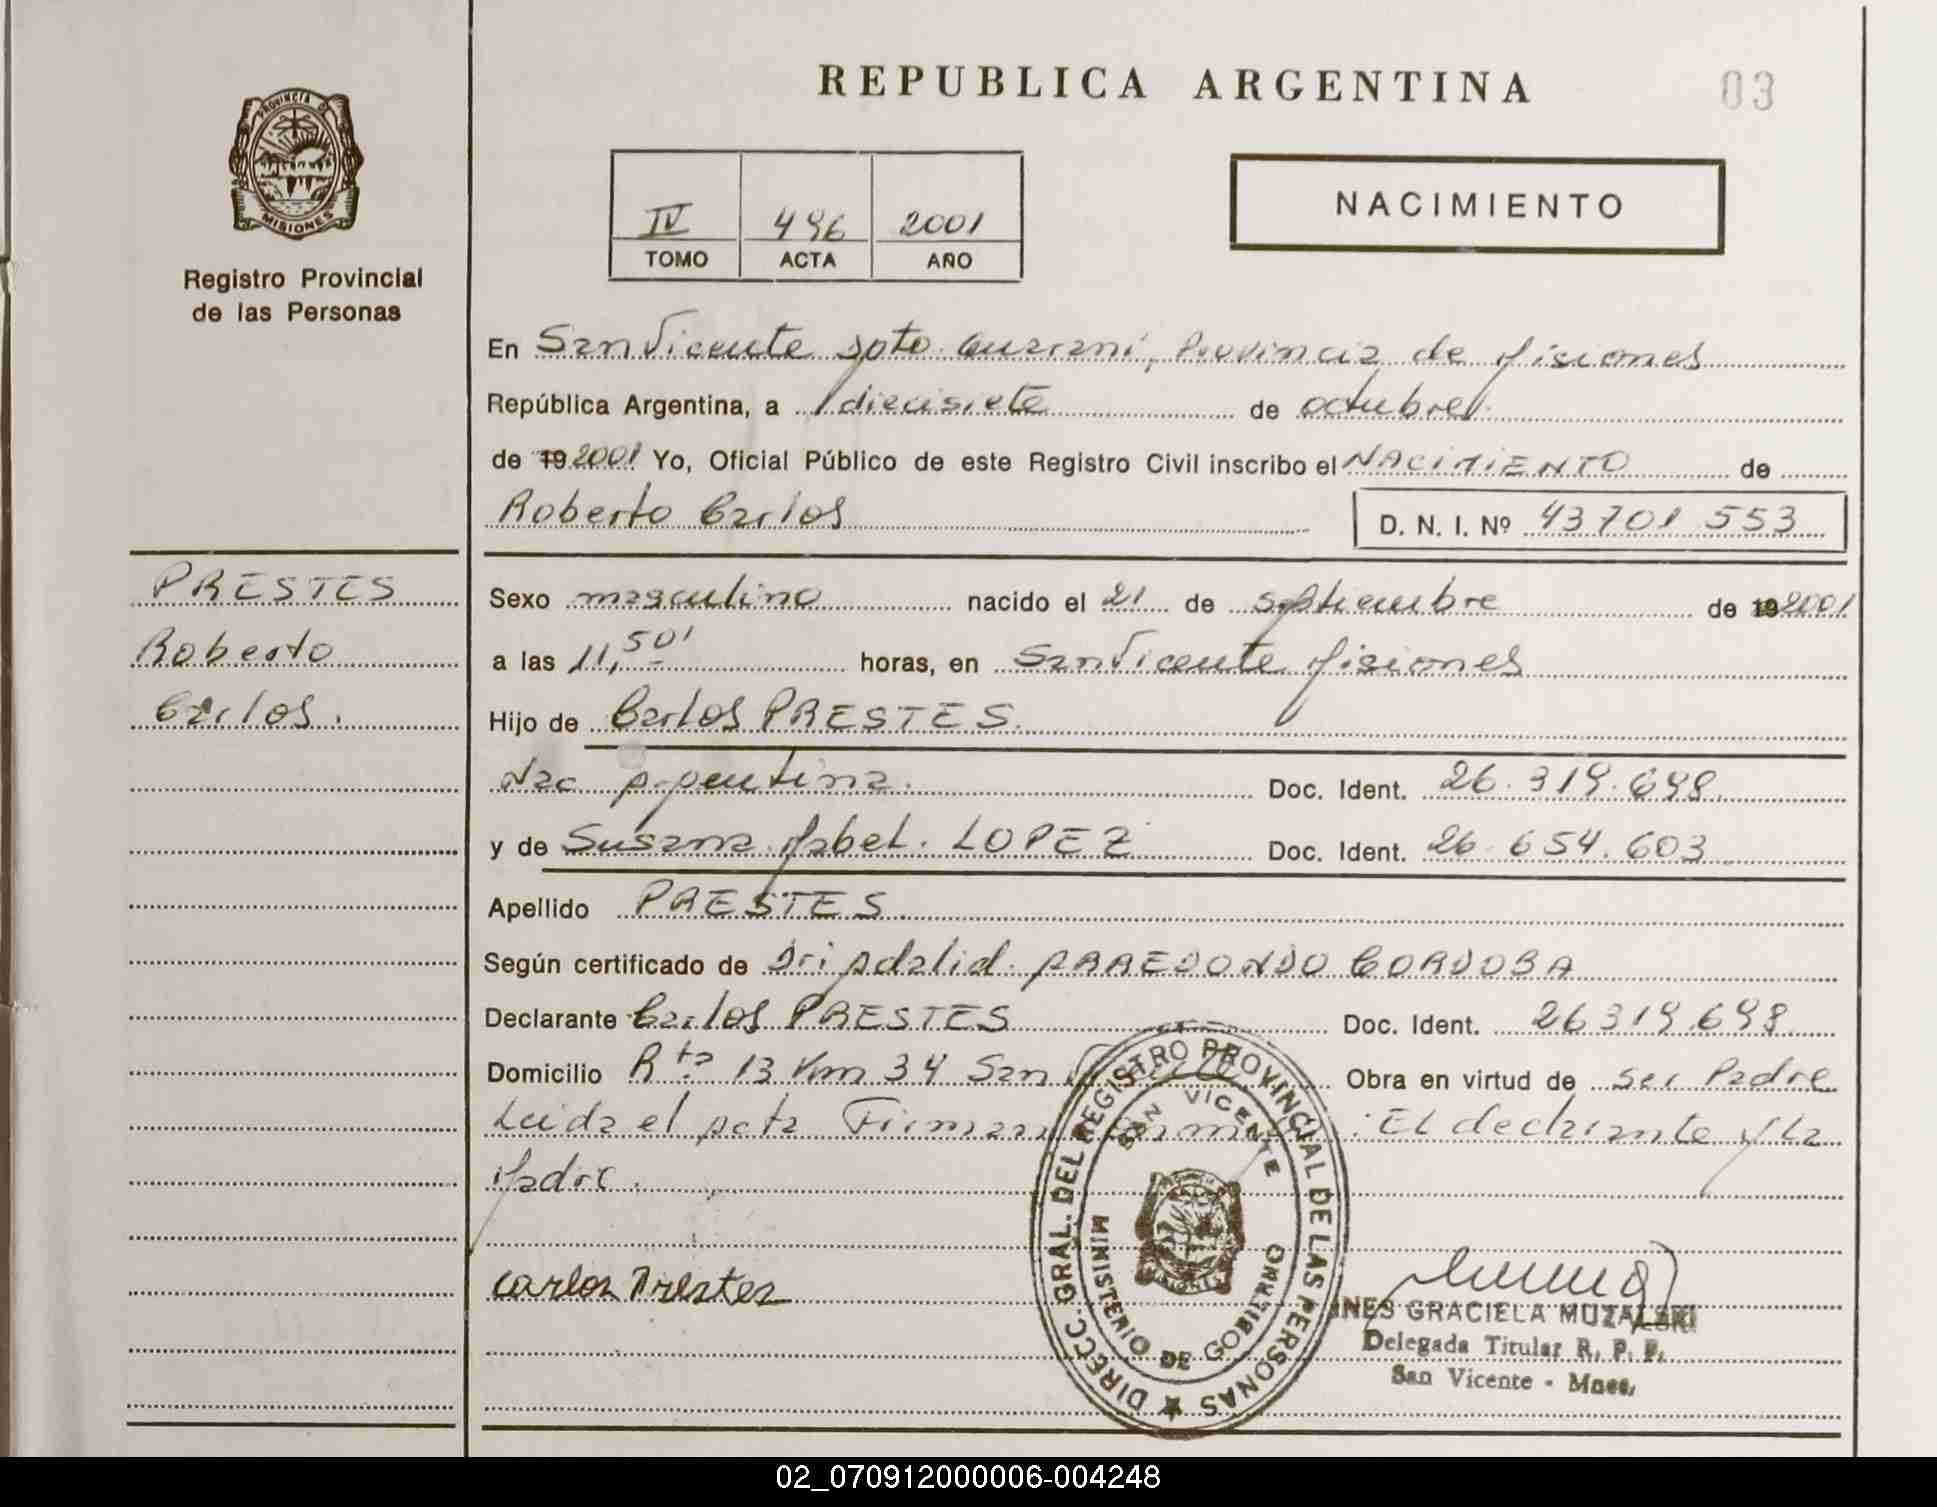 REPUBLICA ARGENTINA
03
PROVINCIA DE
MISIONES
Registro Provincial
de las Personas
IV 496 2001
TOMO ACTA AÑO
NACIMIENTO
En San Vicente Dpto. Guarani, Provincia de Misiones
República Argentina, a diecisiete de octubre
de 19 2001 Yo, Oficial Público de este Registro Civil inscribo el NACIMIENTO de
Roberto Carlos D. N. I. Nº 43701553
PRESTES
Roberto
Carlos.
Sexo masculino nacido el 21 de septiembre de 19 2001
a las 11,50' horas, en San Vicente Misiones
Hijo de Carlos PRESTES.
Nac Argentina. Doc. Ident. 26.319.698
y de Susana Isabel. LOPEZ Doc. Ident. 26.654.603
Apellido PRESTES.
Según certificado de Dr; Adalid. ARREDONDO CORDOBA
Declarante Carlos PRESTES Doc. Ident. 26319.698.
Domicilio Rta 13 Km 34 San Vicente Obra en virtud de ser Padre
Leida el acta Firman : El declarante y la
Madre.
Carlos Prestes
DIRECC. GRAL. DEL REGISTRO PROVINCIAL DE LAS PERSONAS
SAN VICENTE
MINISTERIO DE GOBIERNO
MISIONES
INES GRACIELA MUZALSKI
Delegada Titular R. P. P.
San Vicente - Mnes.
02_070912000006-004248